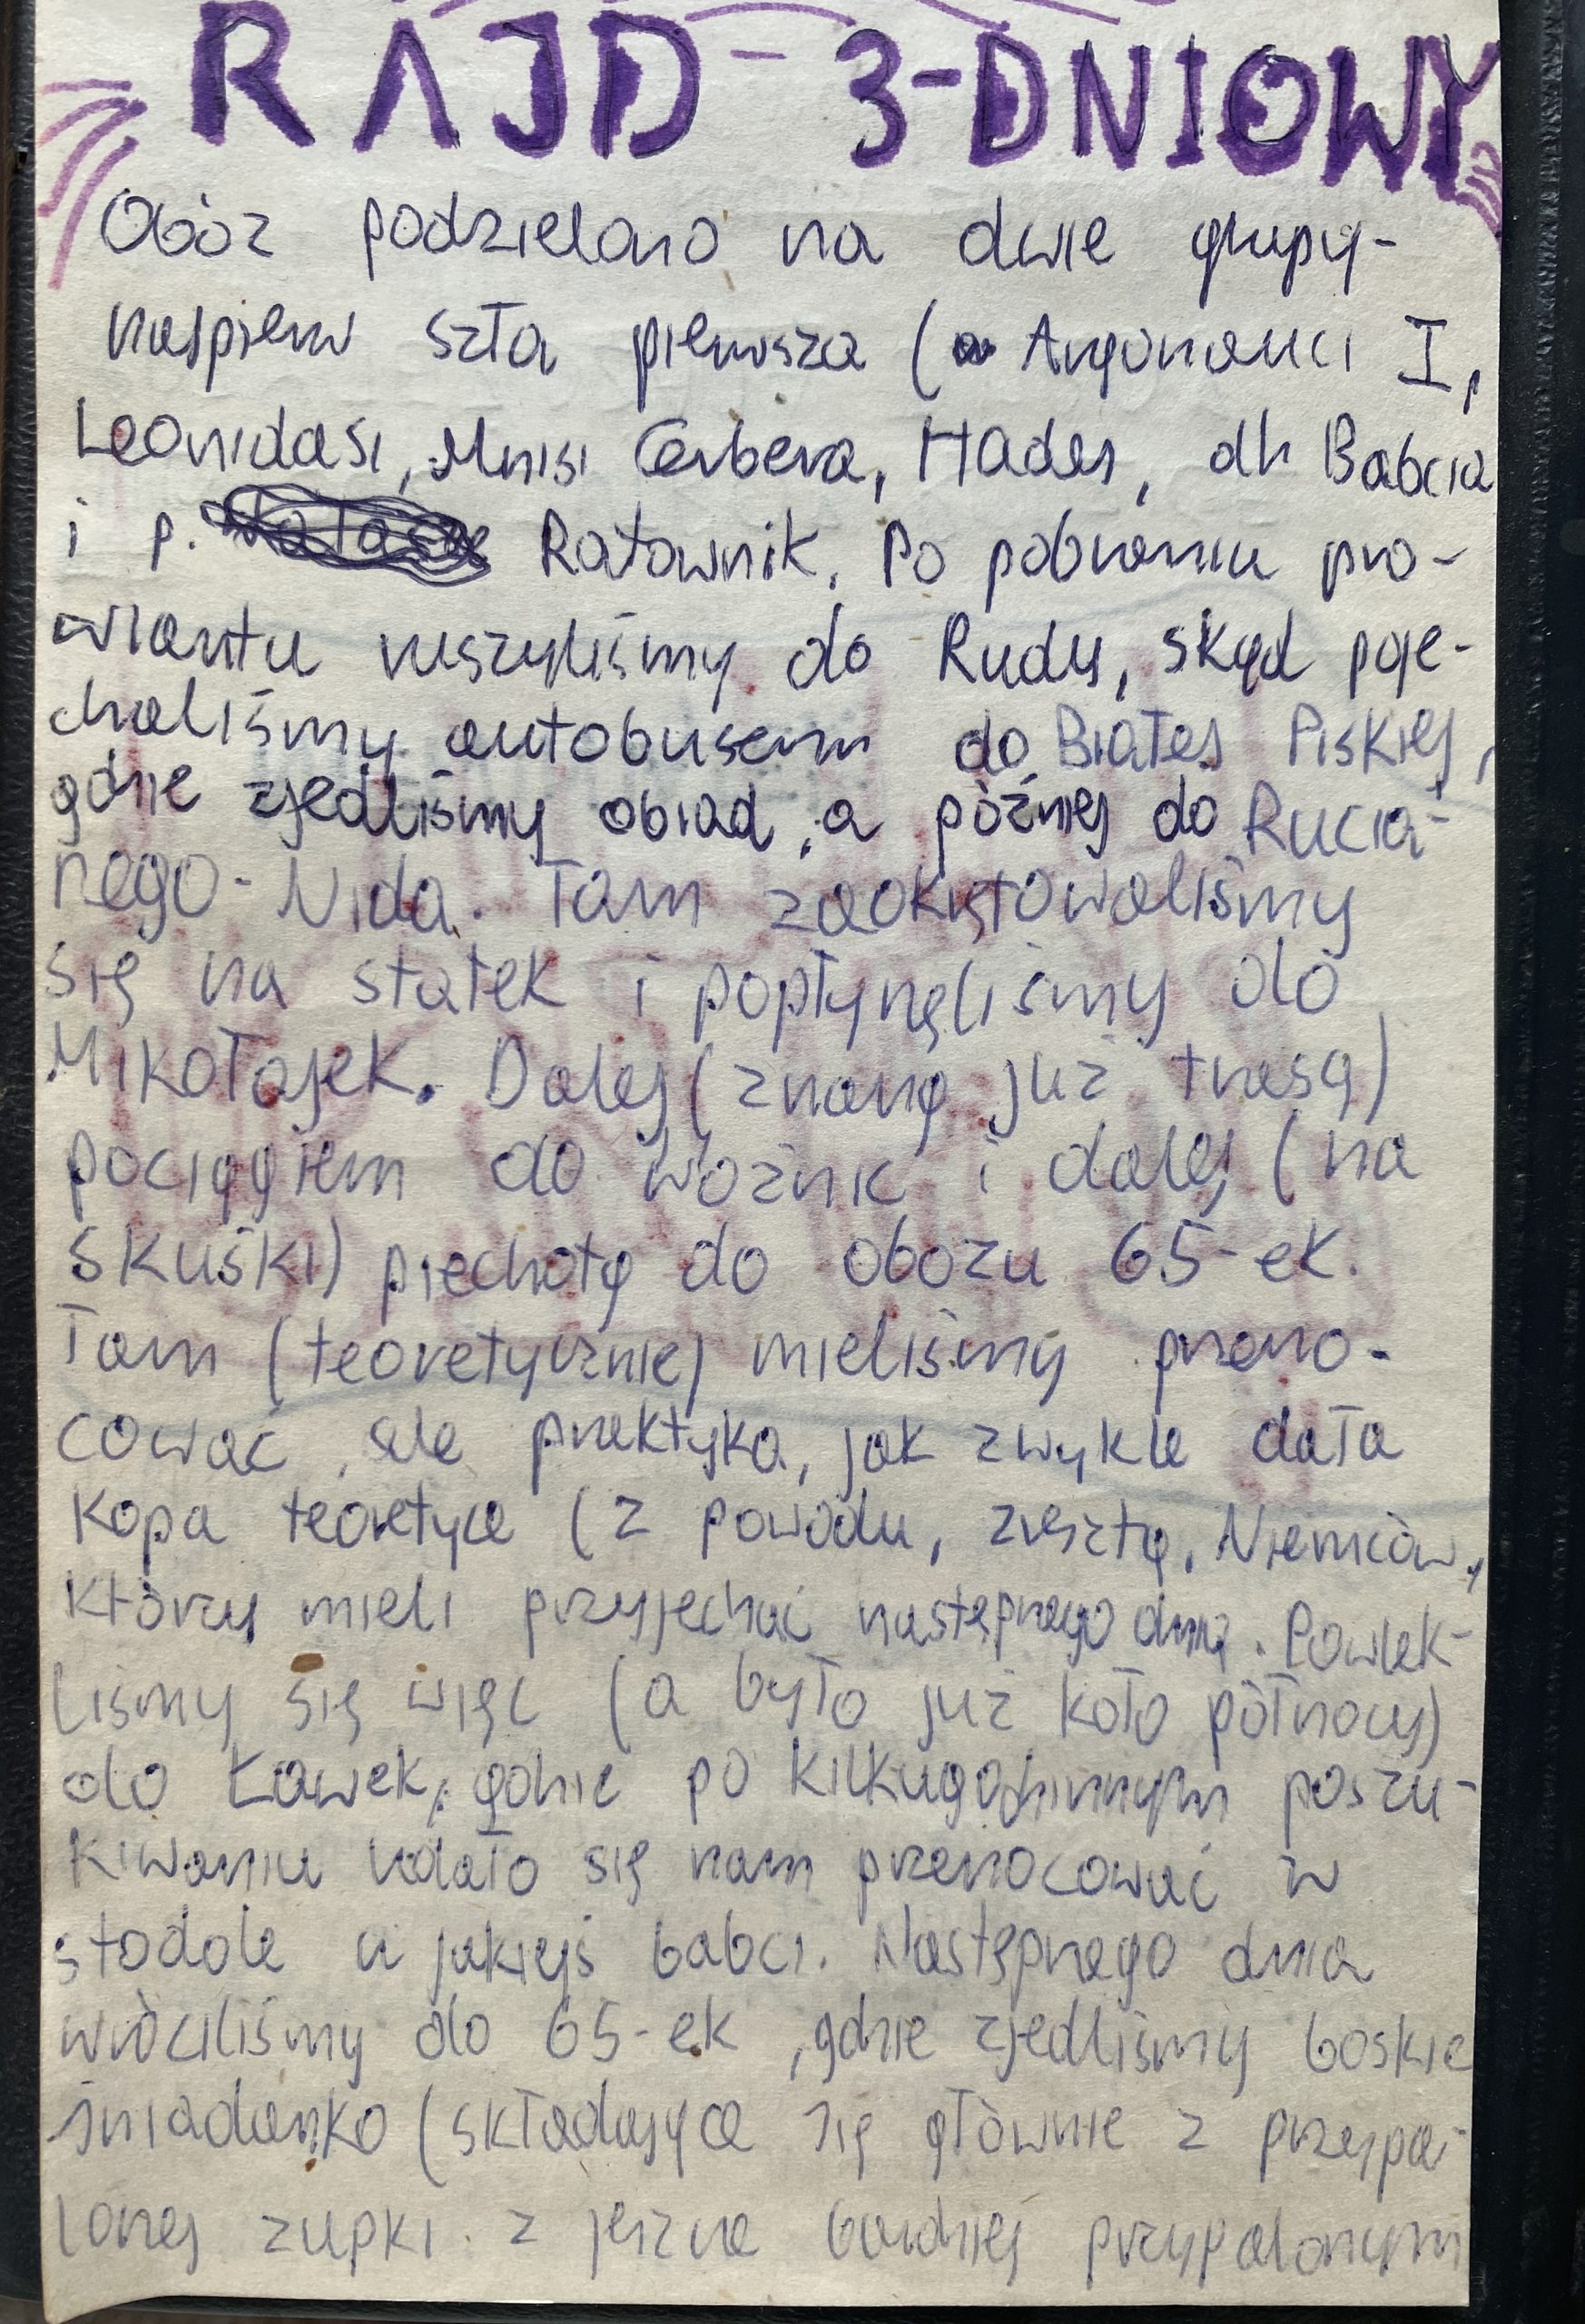 RAJD - 3-DNIOWY
Obóz podzielono na dwie grupy-
najpierw szła pierwsza (Argonauci I,
Leonidasi, Mnisi Cerbera, Hades, dh Babcia
i p. Ratownik. Po pobraniu pro-
wiantu ruszyliśmy do Rudy, skąd poje-
chaliśmy autobusem do Białej Piskiej,
gdzie zjedliśmy obiad, a później do Rucia-
nego-Nida. Tam zaokrętowaliśmy
się na statek i popłynęliśmy do
Mikołajek. Dalej (znaną już trasą)
pociągiem do Woźnic i dalej (na
skuśki) piechotą do obozu 65-ek.
Tam (teoretycznie) mieliśmy przeno-
cować, ale praktyka, jak zwykle dała
kopa teoretyce (z powodu, zresztą, Niemców,
którzy mieli przyjechać następnego dnia. Powlek-
liśmy się więc (a było już koło północy)
do Ławek, gdzie po kilkugodzinnym poszu-
kiwaniu udało się nam przenocować w
stodole u jakiejś babci. Następnego dnia
wróciliśmy do 65-ek, gdzie zjedliśmy boskie
śniadanko (składające się głównie z przypa-
lonej zupki z jeszcze bardziej przypalonym